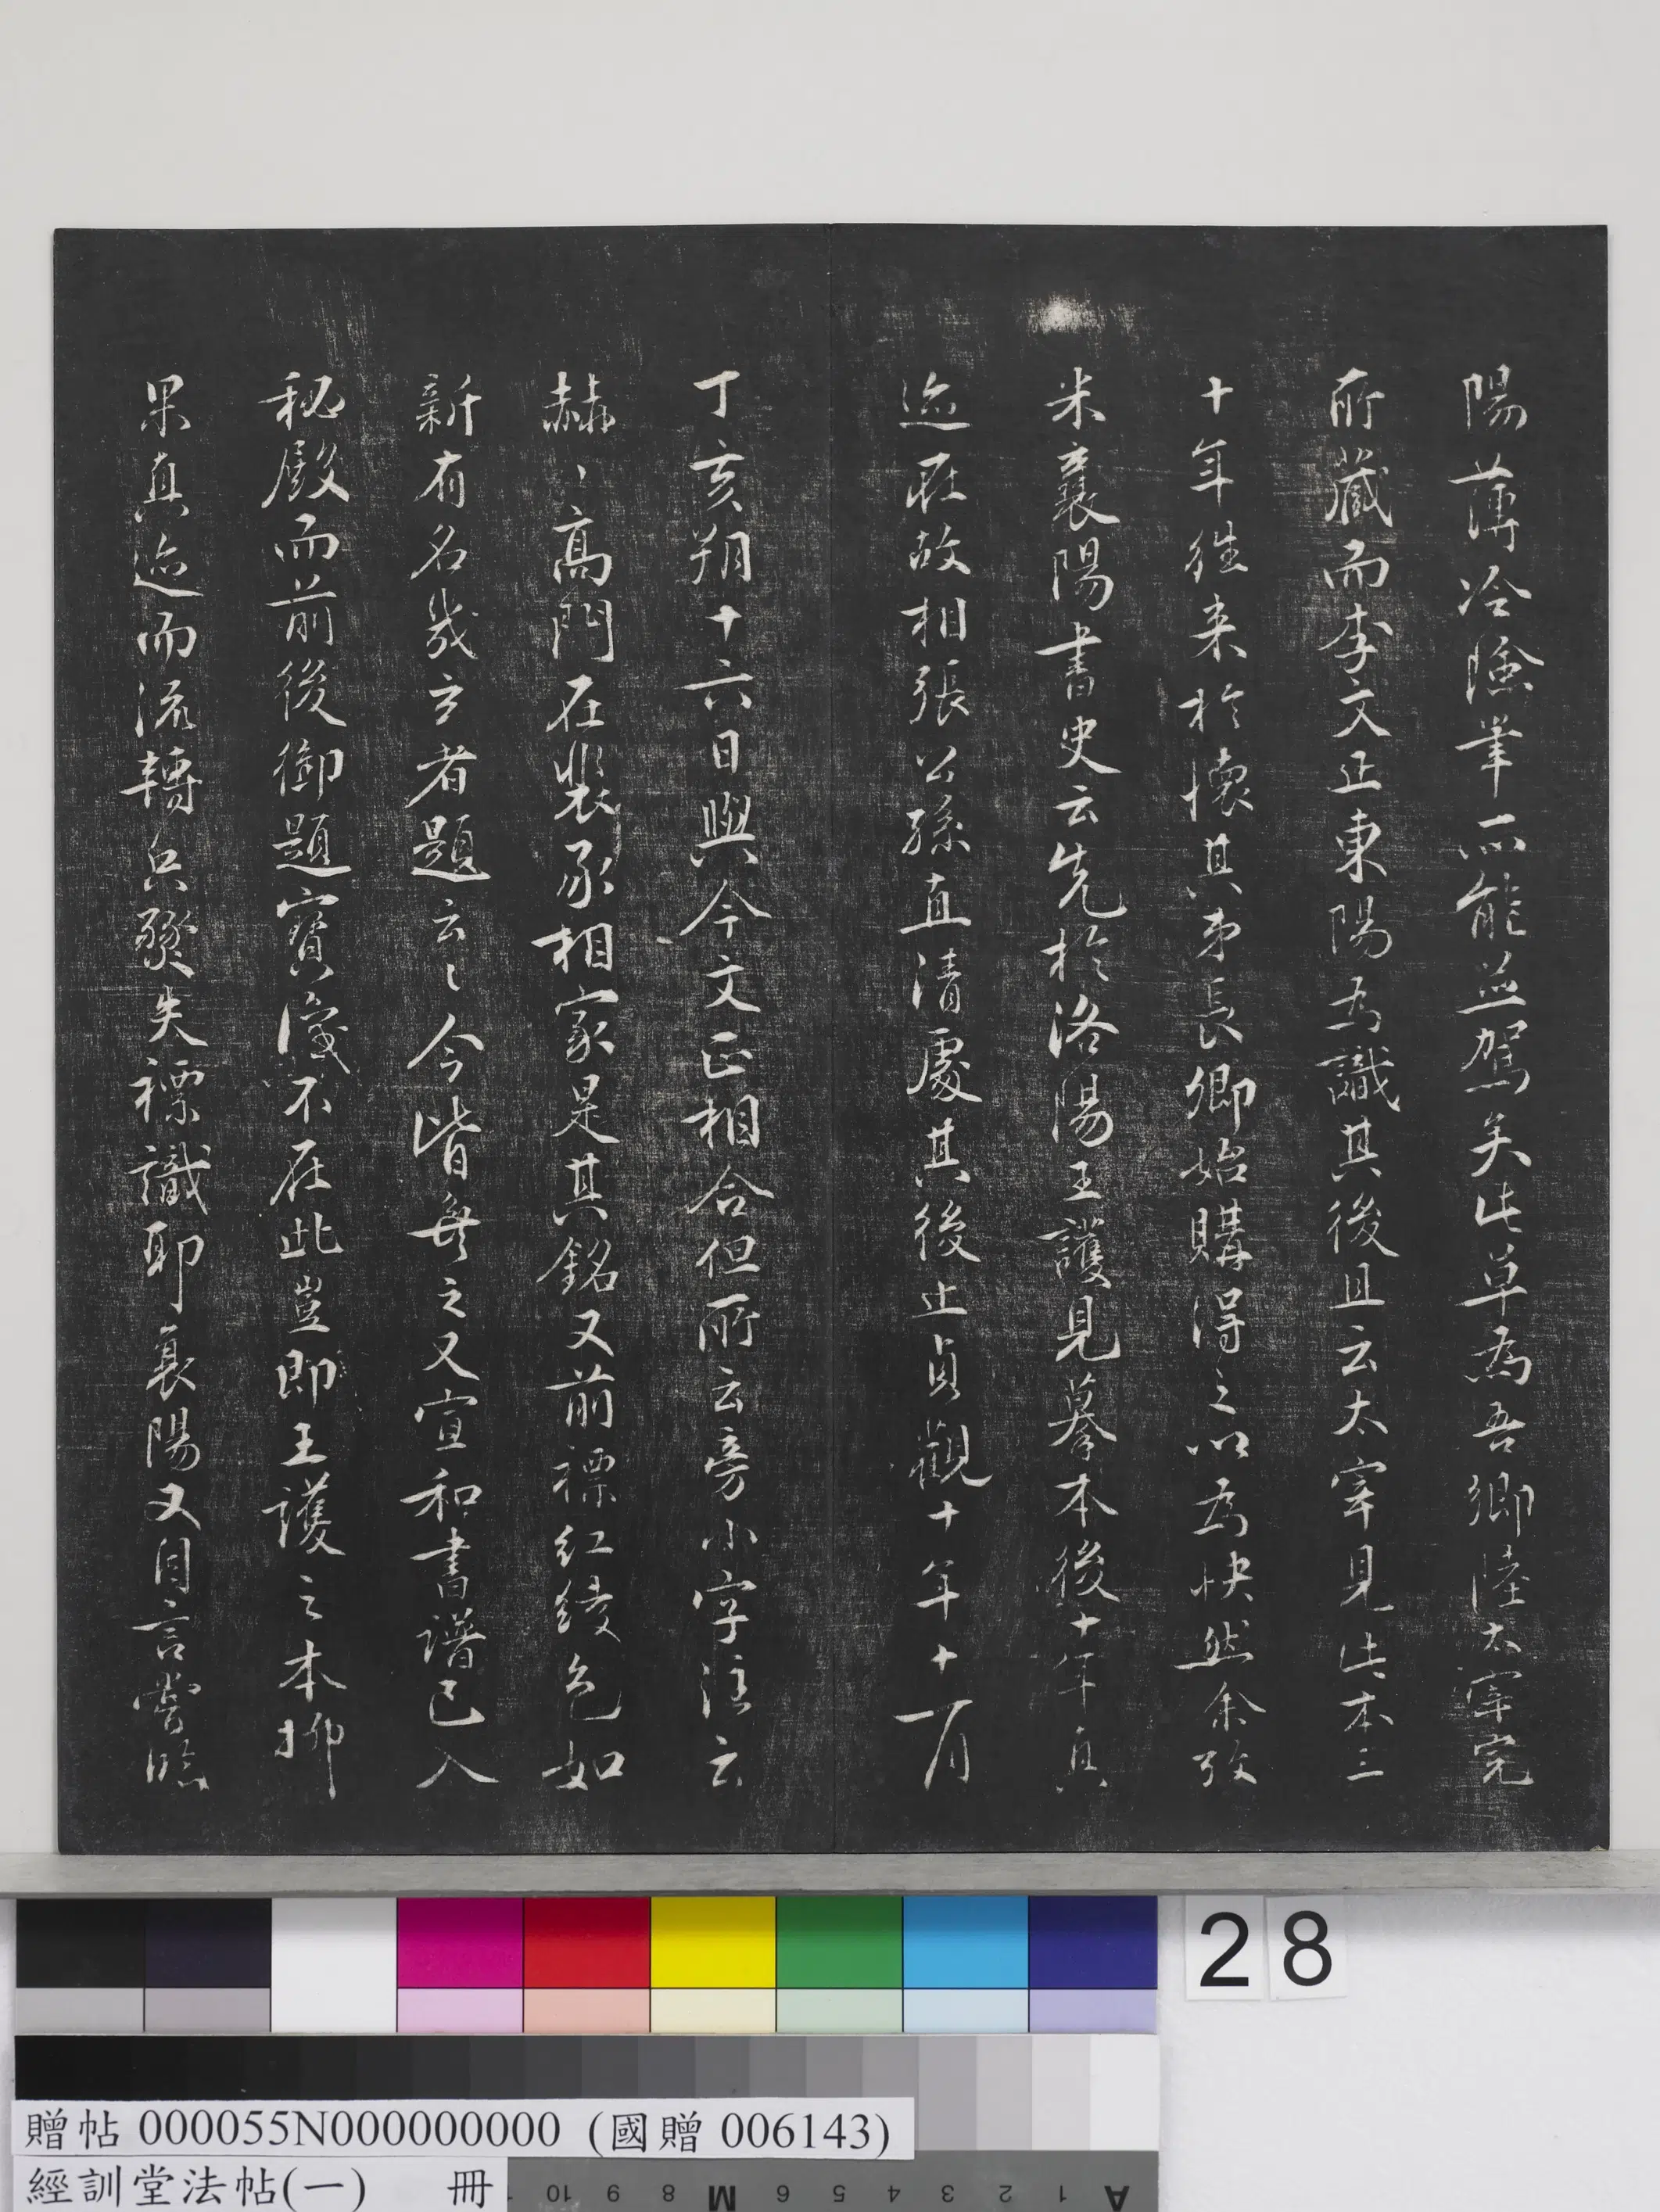 陽薄冷險筆不能並駕矣此草為吾鄉陸太宰完
所藏而李文正東陽為識其後且云太宰見此本三
十年往来於懷其弟長卿始購得之以為快然余攷
米襄陽書史云先於洛陽王護見摹本後十年真
迹在故相張公孫直清處其後止貞觀十年十一月
丁亥朔十六日與今文正相合但所云旁小字注云
赫〻高門在裴丞相家是其銘又前褾紅綾色如
新有名幾玄者題云〻今皆無之又宣和書譜已入
秘殿而前後御題寶璽不在此豈即王護之本抑
果真迹而流轉兵燹失褾識耶襄陽又自言嘗臨
28
贈帖 000055N000000000 (國贈 006143)
經訓堂法帖(一) 冊
10 9 8 M 6 5 4 3 2 1 A